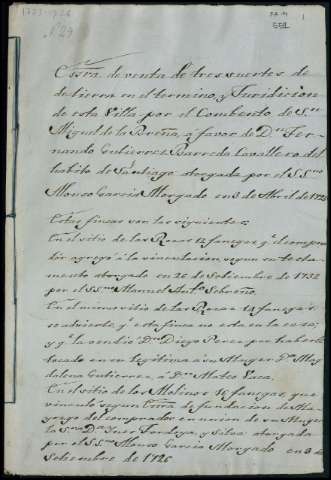 1723-1726
N 29
1
551
Essra. de venta de tres suertes de
de tierra en el termino, y Juridicion
de esta Villa por el Combento de Sn.
Miguel de la Breña, a favor de Dn. Fer-
nando Gutierrez Barreda Cavallero del
habito de Santiago otorgada por el SSno.
Alonso Garcia Morgado en 3 de Abril de 1723
Estas fincas son las siguientes:
En el sitio de las Rozas 12 fanegas q.e el compra-
dor agregó a la vinculacion segun su testa-
mento otorgado en 26 de Setiembre de 1732
por el SSno. Manuel Anto. Sebreño.
En el mismo sitio de las Rozas 14 fanegas
se advierte q.e esta finca no esta en la casa;
y q.e la vendio Dn. Diego Perez por haberle
tocado en su legitima a su Muger Da. Mag
dalena Gutierrez a Dn. Mateo Vaca.
En el sitio de los Molinos 10 fanegas que
vinculo segun Essra de fundacion de Ma-
yrazgo del comprador en union de su Muger
la Sra. Da. Ines Tordoya, y Silva otorgada
por el SSno. Alonso Garcia Morgado en 3 de
Setiembre de 1726